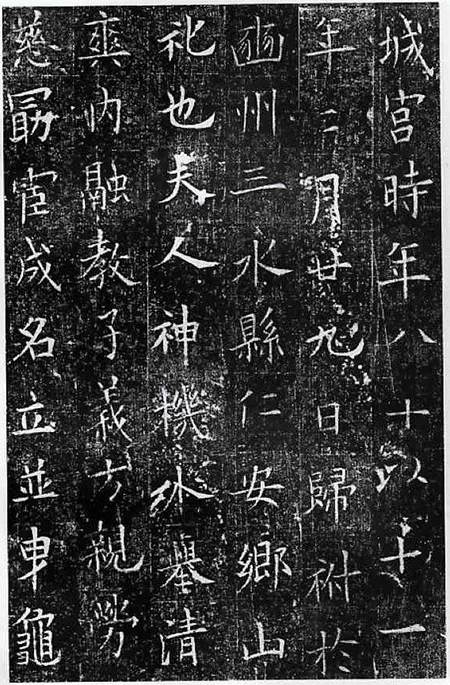 城宮時年八十以十一
年二月廿九日歸祔於
豳州三水縣仁安鄉山
礼也夫人神機外舉清
爽内融教子義方親勞
慈勗宦成名立並申龜